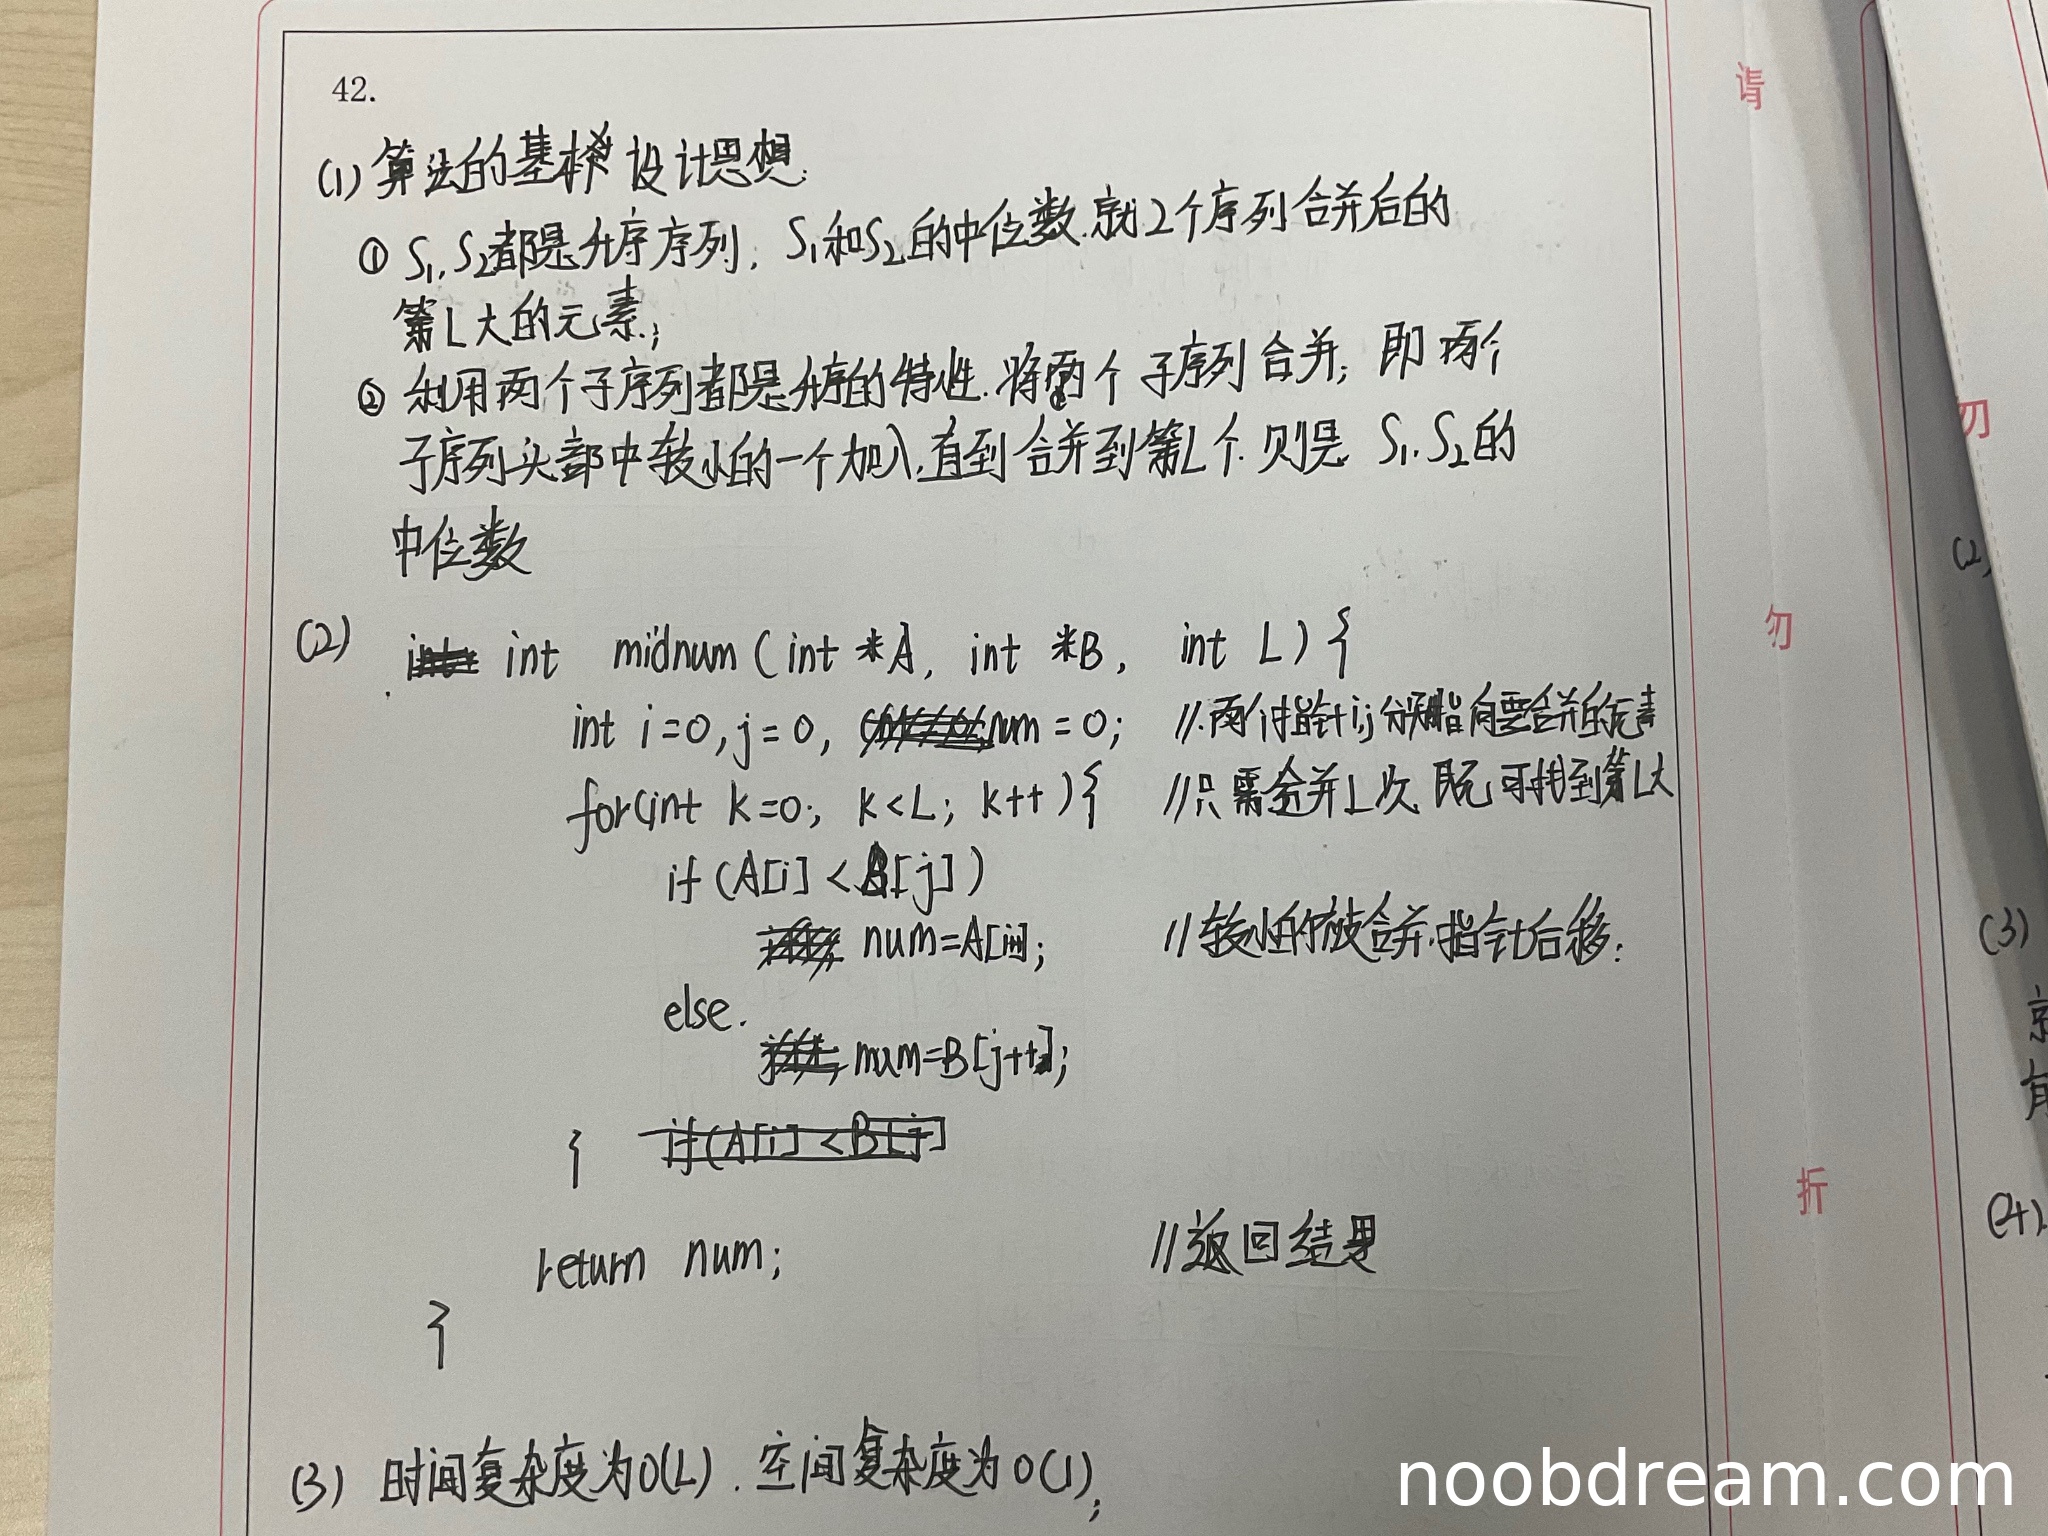 42.
(1) 算法的基本设计思想.
① S1, S2都是升序序列, S1和S2的中位数.就2个序列合并后的
第L大的元素;
② 利用两个子序列都是升序的特性.将两个子序列合并; 即两个
子序列头部中较小的一个加入,直到合并到第L个.则是 S1,S2的
中位数
(2) int midnum (int *A, int *B, int L) {
int i=0, j=0, num=0; //两个指针i,j分别指向要合并的元素
for(int k=0; k<L; k++){ //只需合并L次 既可找到第L大
if (A[i] < B[j])
num=A[i++]; //较小的被合并,指针后移;
else.
num=B[j++];
}
return num; //返回结果
}
(3) 时间复杂度为O(L). 空间复杂度为 O(1);
请
勿
折
勿
(2)
(3)
(4)
noobdream.com